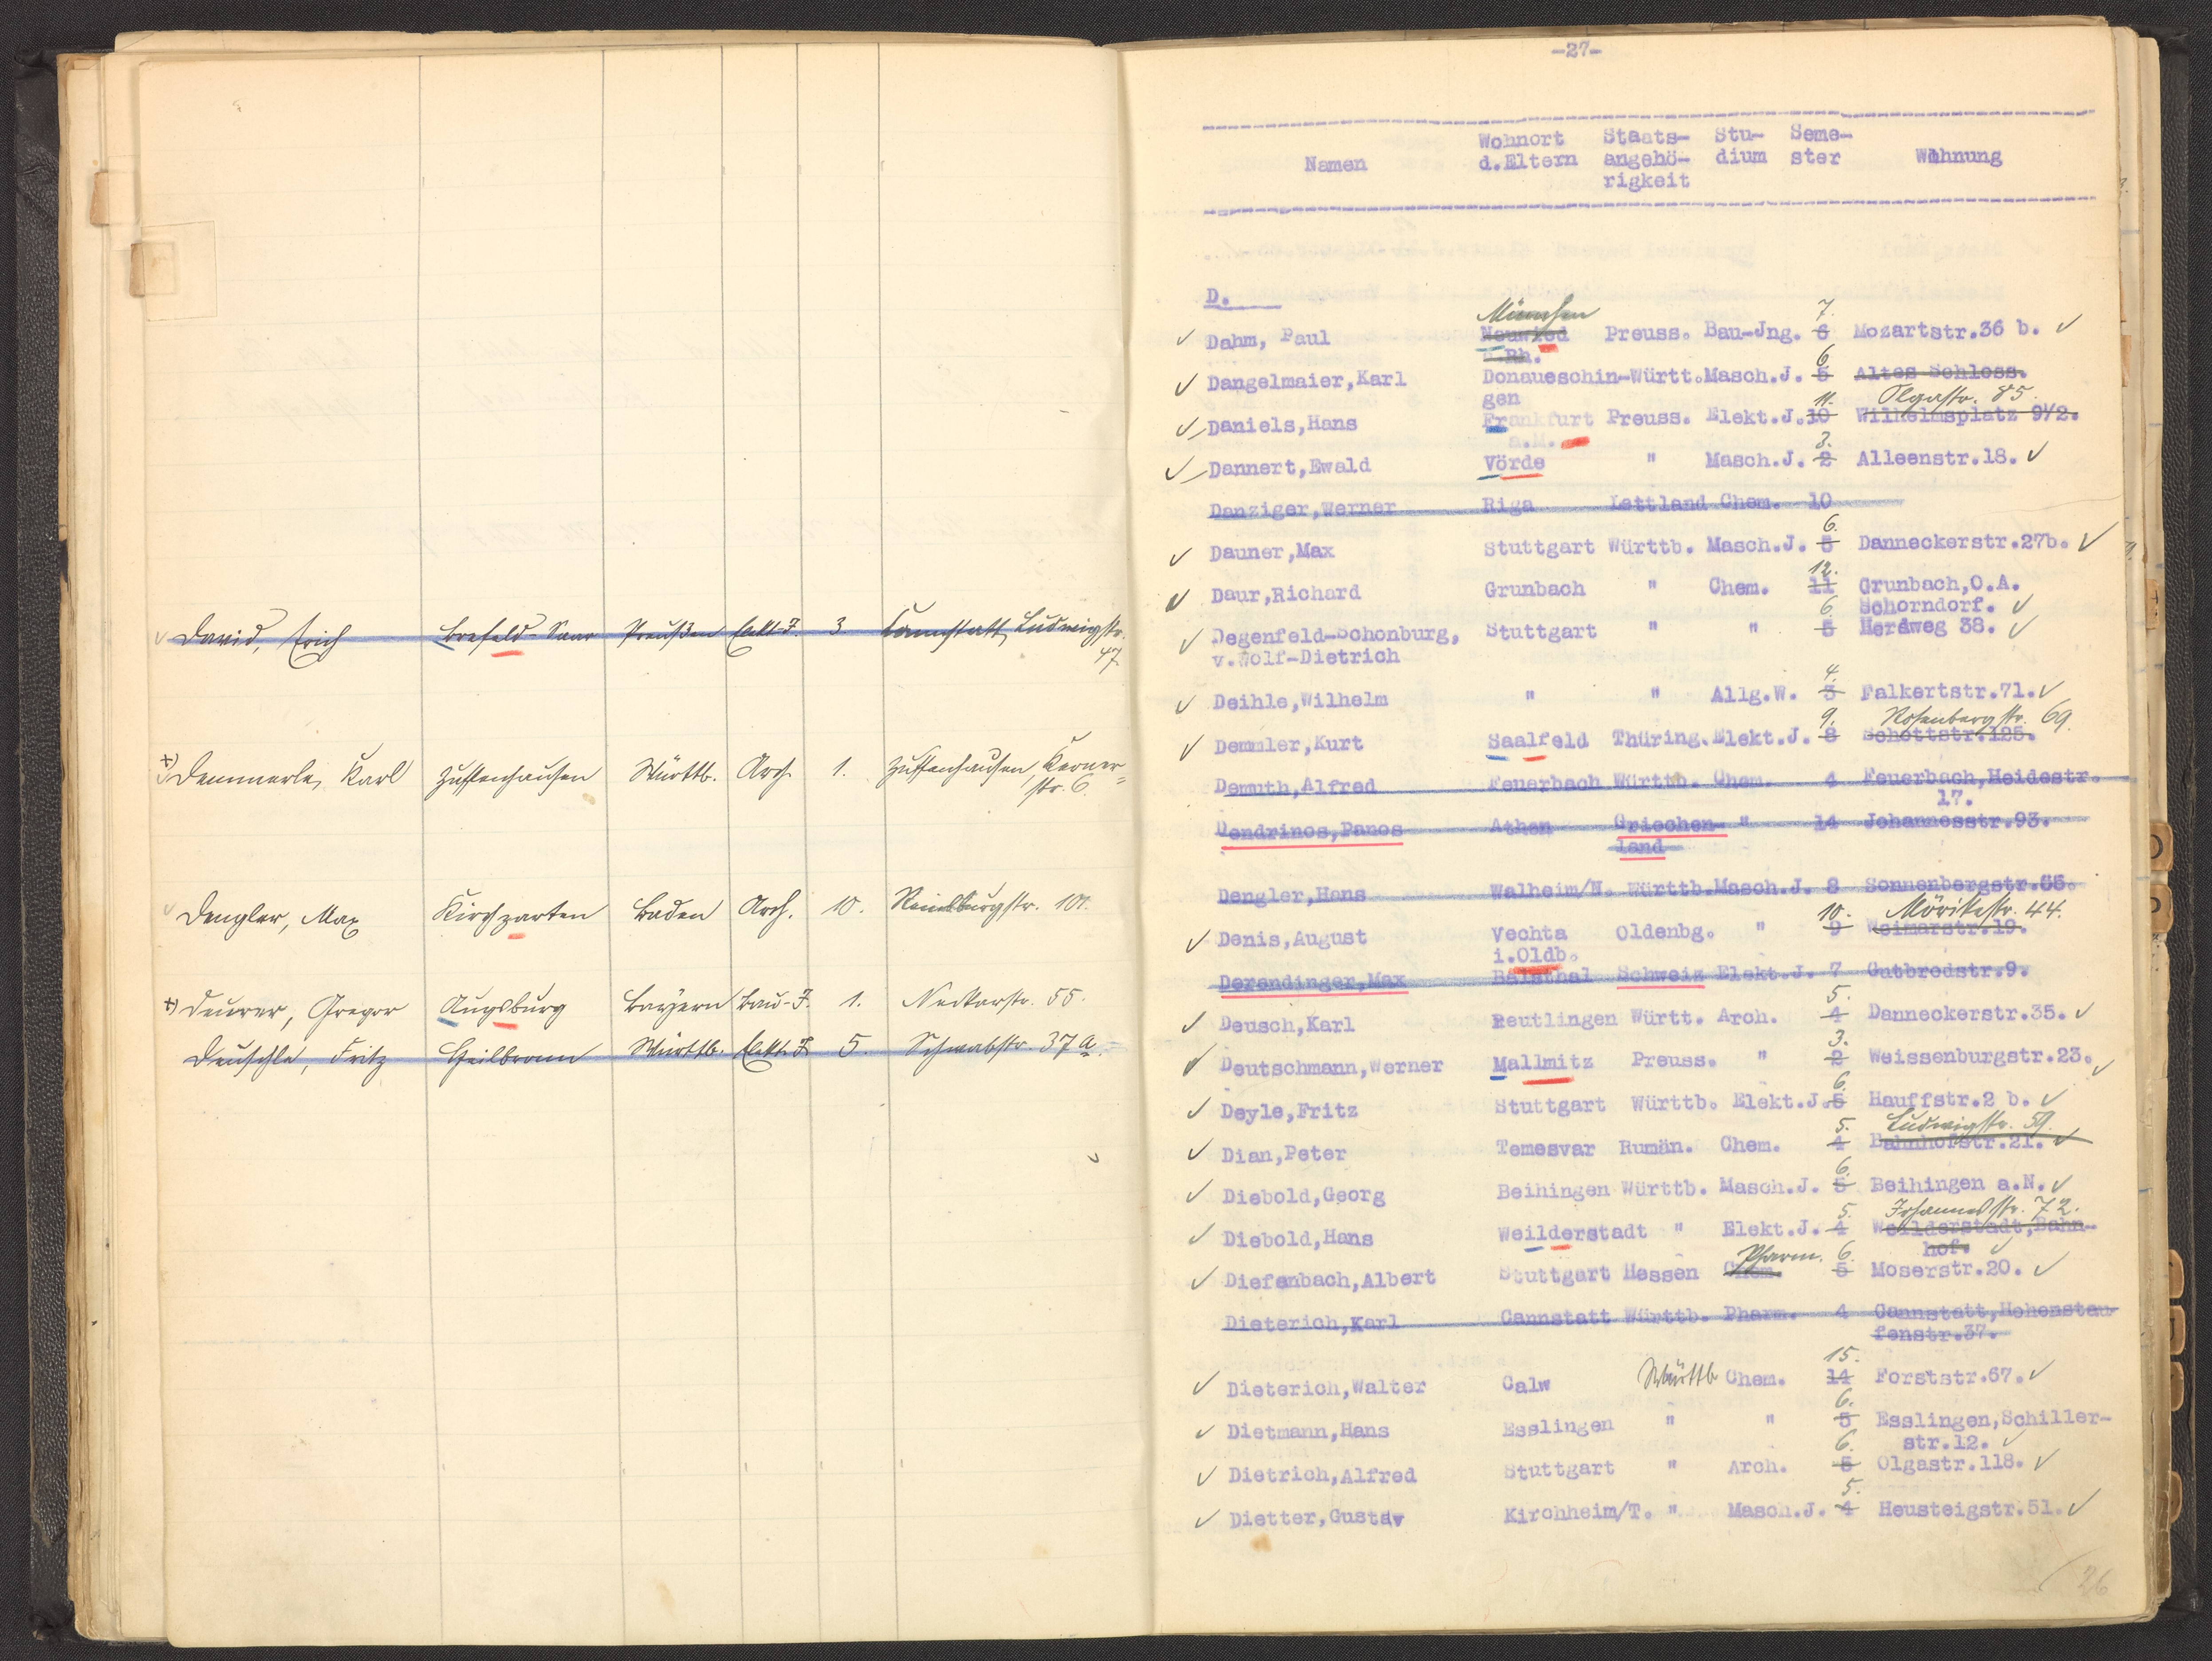 David, Erich Brefeld-Saar Preußen Elekt-J. 3. Cannstatt, Ludwigstr.
47.
+) Demmerle, Karl Zuffenhausen Württb. Arch. 1. Zuffenhausen, Kerner-
str. 6.
Dengler, Max Kirchzarten Baden Arch. 10. Reinsburgstr. 101.
+) Deurer, Gregor Augsburg Bayern Bau-J. 1. Neckarstr. 55.
Deuschle, Fritz Heilbronn Württb. Elekt. J. 5. Schwabstr. 37a.
-27-
Wohnort Staats- Stu- Seme-
Namen d.Eltern angehö- dium ster Wohnung
rigkeit
D.
München 7.
Dahm, Paul Neuwied Preuss. Bau-Jng. 6 Mozartstr.36 b.
a.Rh. 6.
Dangelmaier,Karl Donaueschin-Württ.Masch.J. 5 Altes Schloss.
gen 11. Olgastr. 85.
Daniels,Hans Frankfurt Preuss. Elekt.J.10 Wilhelmsplatz 9½.
a.M. 3.
Dannert,Ewald Vörde " Masch.J. 2 Alleenstr.18.
Danziger,Werner Riga Lettland Chem. 10
6.
Dauner,Max Stuttgart Württb. Masch.J. 5 Danneckerstr.27b.
12.
Daur,Richard Grunbach " Chem. 11 Grunbach,O.A.
6. Schorndorf.
Degenfeld-Schonburg, Stuttgart " " 5 Herdweg 38.
v.Wolf-Dietrich
4.
Deihle,Wilhelm " " Allg.W. 3 Falkertstr.71.
9. Rosenbergstr. 69.
Demmler,Kurt Saalfeld Thüring.Elekt.J. 8 Schottstr.125.
Demuth,Alfred Feuerbach Württb. Chem. 4 Feuerbach,Heidestr.
17.
Dendrinos,Panos Athen Griechen- " 14 Johannesstr.93.
land
Dengler,Hans Walheim/N. Württb.Masch.J. 8 Sonnenbergstr.55.
10. Mörikestr. 44.
Denis,August Vechta Oldenbg. " 9 Weimarstr.19.
i.Oldb.
Derendinger,Max Balsthal Schweiz Elekt.J. 7 Gutbrodstr.9.
5.
Deusch,Karl Reutlingen Württ. Arch. 4 Danneckerstr.35.
3.
Deutschmann,Werner Mallmitz Preuss. " 2 Weissenburgstr.23.
6.
Deyle,Fritz Stuttgart Württb. Elekt.J.5 Hauffstr.2 b.
5. Ludwigstr. 59.
Dian,Peter Temesvar Rumän. Chem. 4 Bahnhofstr.21.
6.
Diebold,Georg Beihingen Württb. Masch.J. 5 Beihingen a.N.
5. Johannesstr. 72.
Diebold,Hans Weilderstadt " Elekt.J. 4 Weilderstadt,Bahn-
Pharm. 6. hof.
Diefenbach,Albert Stuttgart Hessen Chem. 5 Moserstr.20.
Dieterich,Karl Cannstatt Württb. Pharm. 4 Cannstatt,Hohenstau-
fenstr.37.
15.
Dieterich,Walter Calw Württb Chem. 14 Forststr.67.
6.
Dietmann,Hans Esslingen " " 5 Esslingen,Schiller-
6. str.12.
Dietrich,Alfred Stuttgart " Arch. 5 Olgastr.118.
5.
Dietter,Gustav Kirchheim/T. " Masch.J. 4 Heusteigstr.51.
26